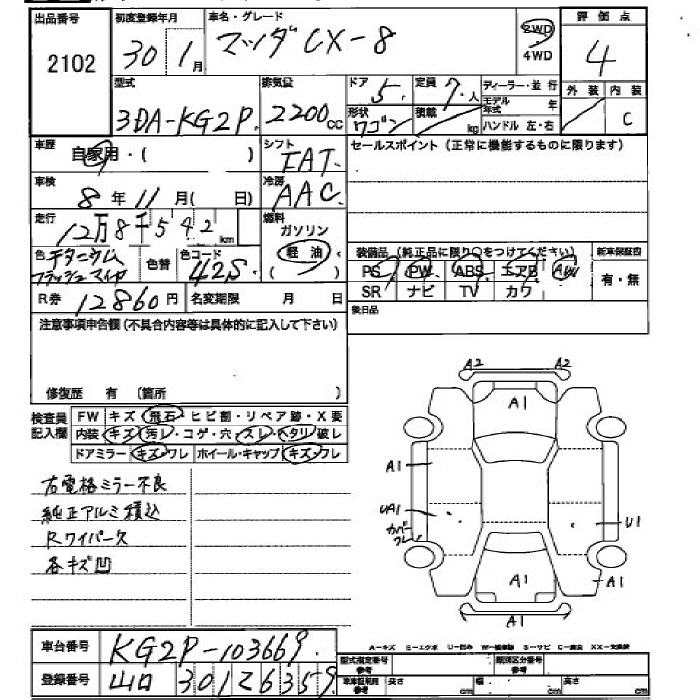 出品番号 初度登録年月 車名・グレード 評価点
2102 30 1月 マツダCX-8 2WD 4WD 4
型式 排気量 ドア 定員 ディーラー・並行 外装 内装
3DA-KG2P. 2200cc 5. 7.人 モデル年式 年
形状 積載 C
ワゴン kg ハンドル 左・右
車歴 シフト セールスポイント (正常に機能するものに限ります)
自家用・( ) IAT.
車検 冷房
8年11月( 日) AAC.
走行 燃料
12万8千542km ガソリン
色 チタニウムフラッシュマイカ 色替 色コード 42S. 軽油 ( )
装備品 (純正品に限り○をつけてください) 新車保証書
PS PW ABS エアB AW 有・無
SR ナビ TV カワ
R券 12860円 名変期限 月 日
後日品
注意事項申告欄 (不具合内容等は具体的に記入して下さい)
修復歴 有 (箇所 )
検査員記入欄 FW キズ・飛石・ヒビ割・リペア跡・X要
内装 キズ・汚レ・コゲ・穴・スレ・ヘタリ・破レ
ドアミラー キズ・ワレ ホイール・キャップ キズ・ワレ
A2 A2
A1
A1
UA1
カバーワレ
U1
A1
A1
右電格ミラー不良
純正アルミ積込
Rワイパー欠
各キズ凹
車台番号 KG2P-103669.
A-キズ E-エクボ U-凹み W-補修跡 S-サビ C-腐食 XX-交換済
登録番号 山口 301 2 6359
型式指定番号 参考 類別区分番号 参考
車体証明用 参考 長さ cm 幅 cm 高さ cm